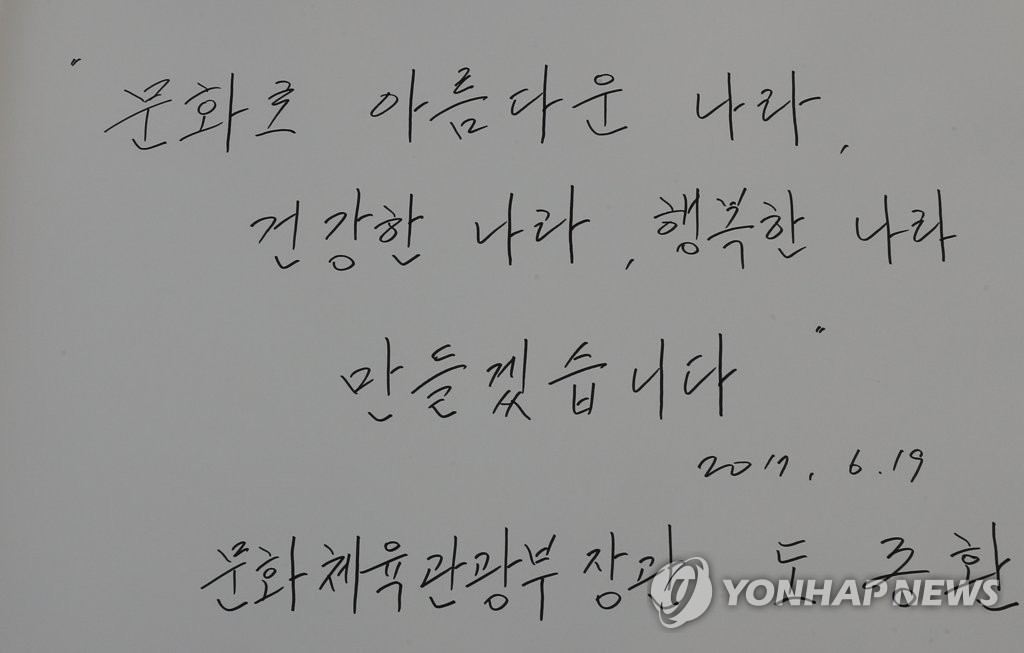 "문화로 아름다운 나라,
건강한 나라, 행복한 나라
만들겠습니다"
2017. 6. 19
문화체육관광부장관 도종환
YONHAP NEWS